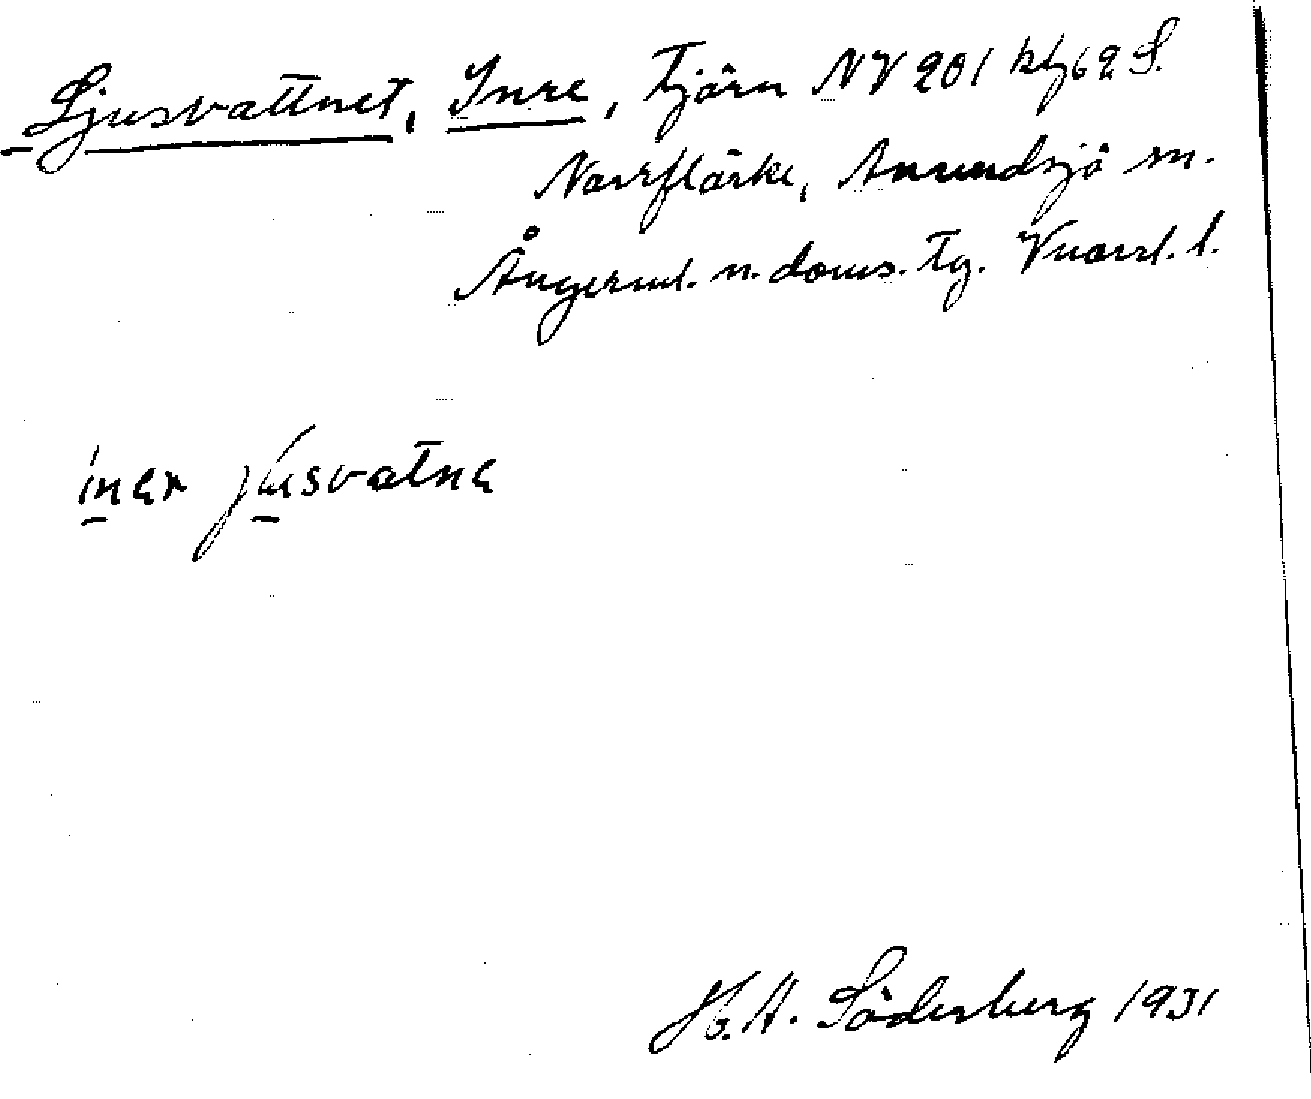 Ljusvattnet, Inre, Tjärn NV 201
Norrflärke, Anundsjö sn.
Ångerml. n. doms. tg. Vnorrl. l.
inər jusvatnə
H. A. Söderberg 1931